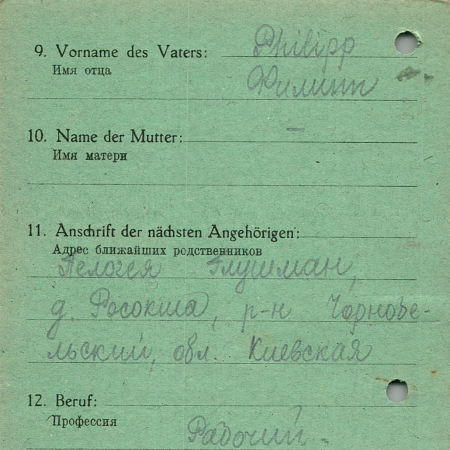 9. Vorname des Vaters: Philipp
Имя отца Филипп
10. Name der Mutter: –
Имя матери
11. Anschrift der nächsten Angehörigen:
Адрес ближайших родственников
Пелогея Глушман,
д. Росокша, р-н Чорнобе-
льский, обл. Киевская
12. Beruf:
Профессия Рабочий